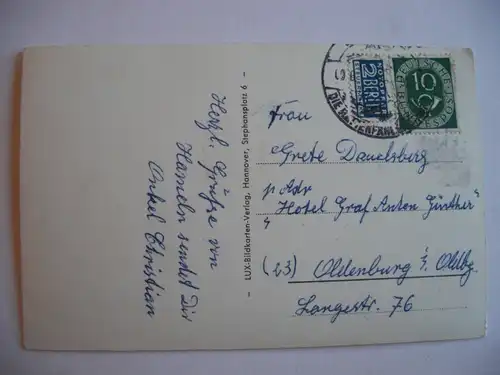 Herzl. Grüße von
Hameln sendet Dir
Onkel Christian
LUX-Bildkarten-Verlag, Hannover, Stephansplatz 6
2 BERLIN
NOTOPFER
STEUERMARKE
10
DIE RATTENFÄN
Frau
Grete Dauelsberg
p. Adr
"Hotel Graf Anton Günther"
(23) Oldenburg i. Oldbg.
Langestr. 76